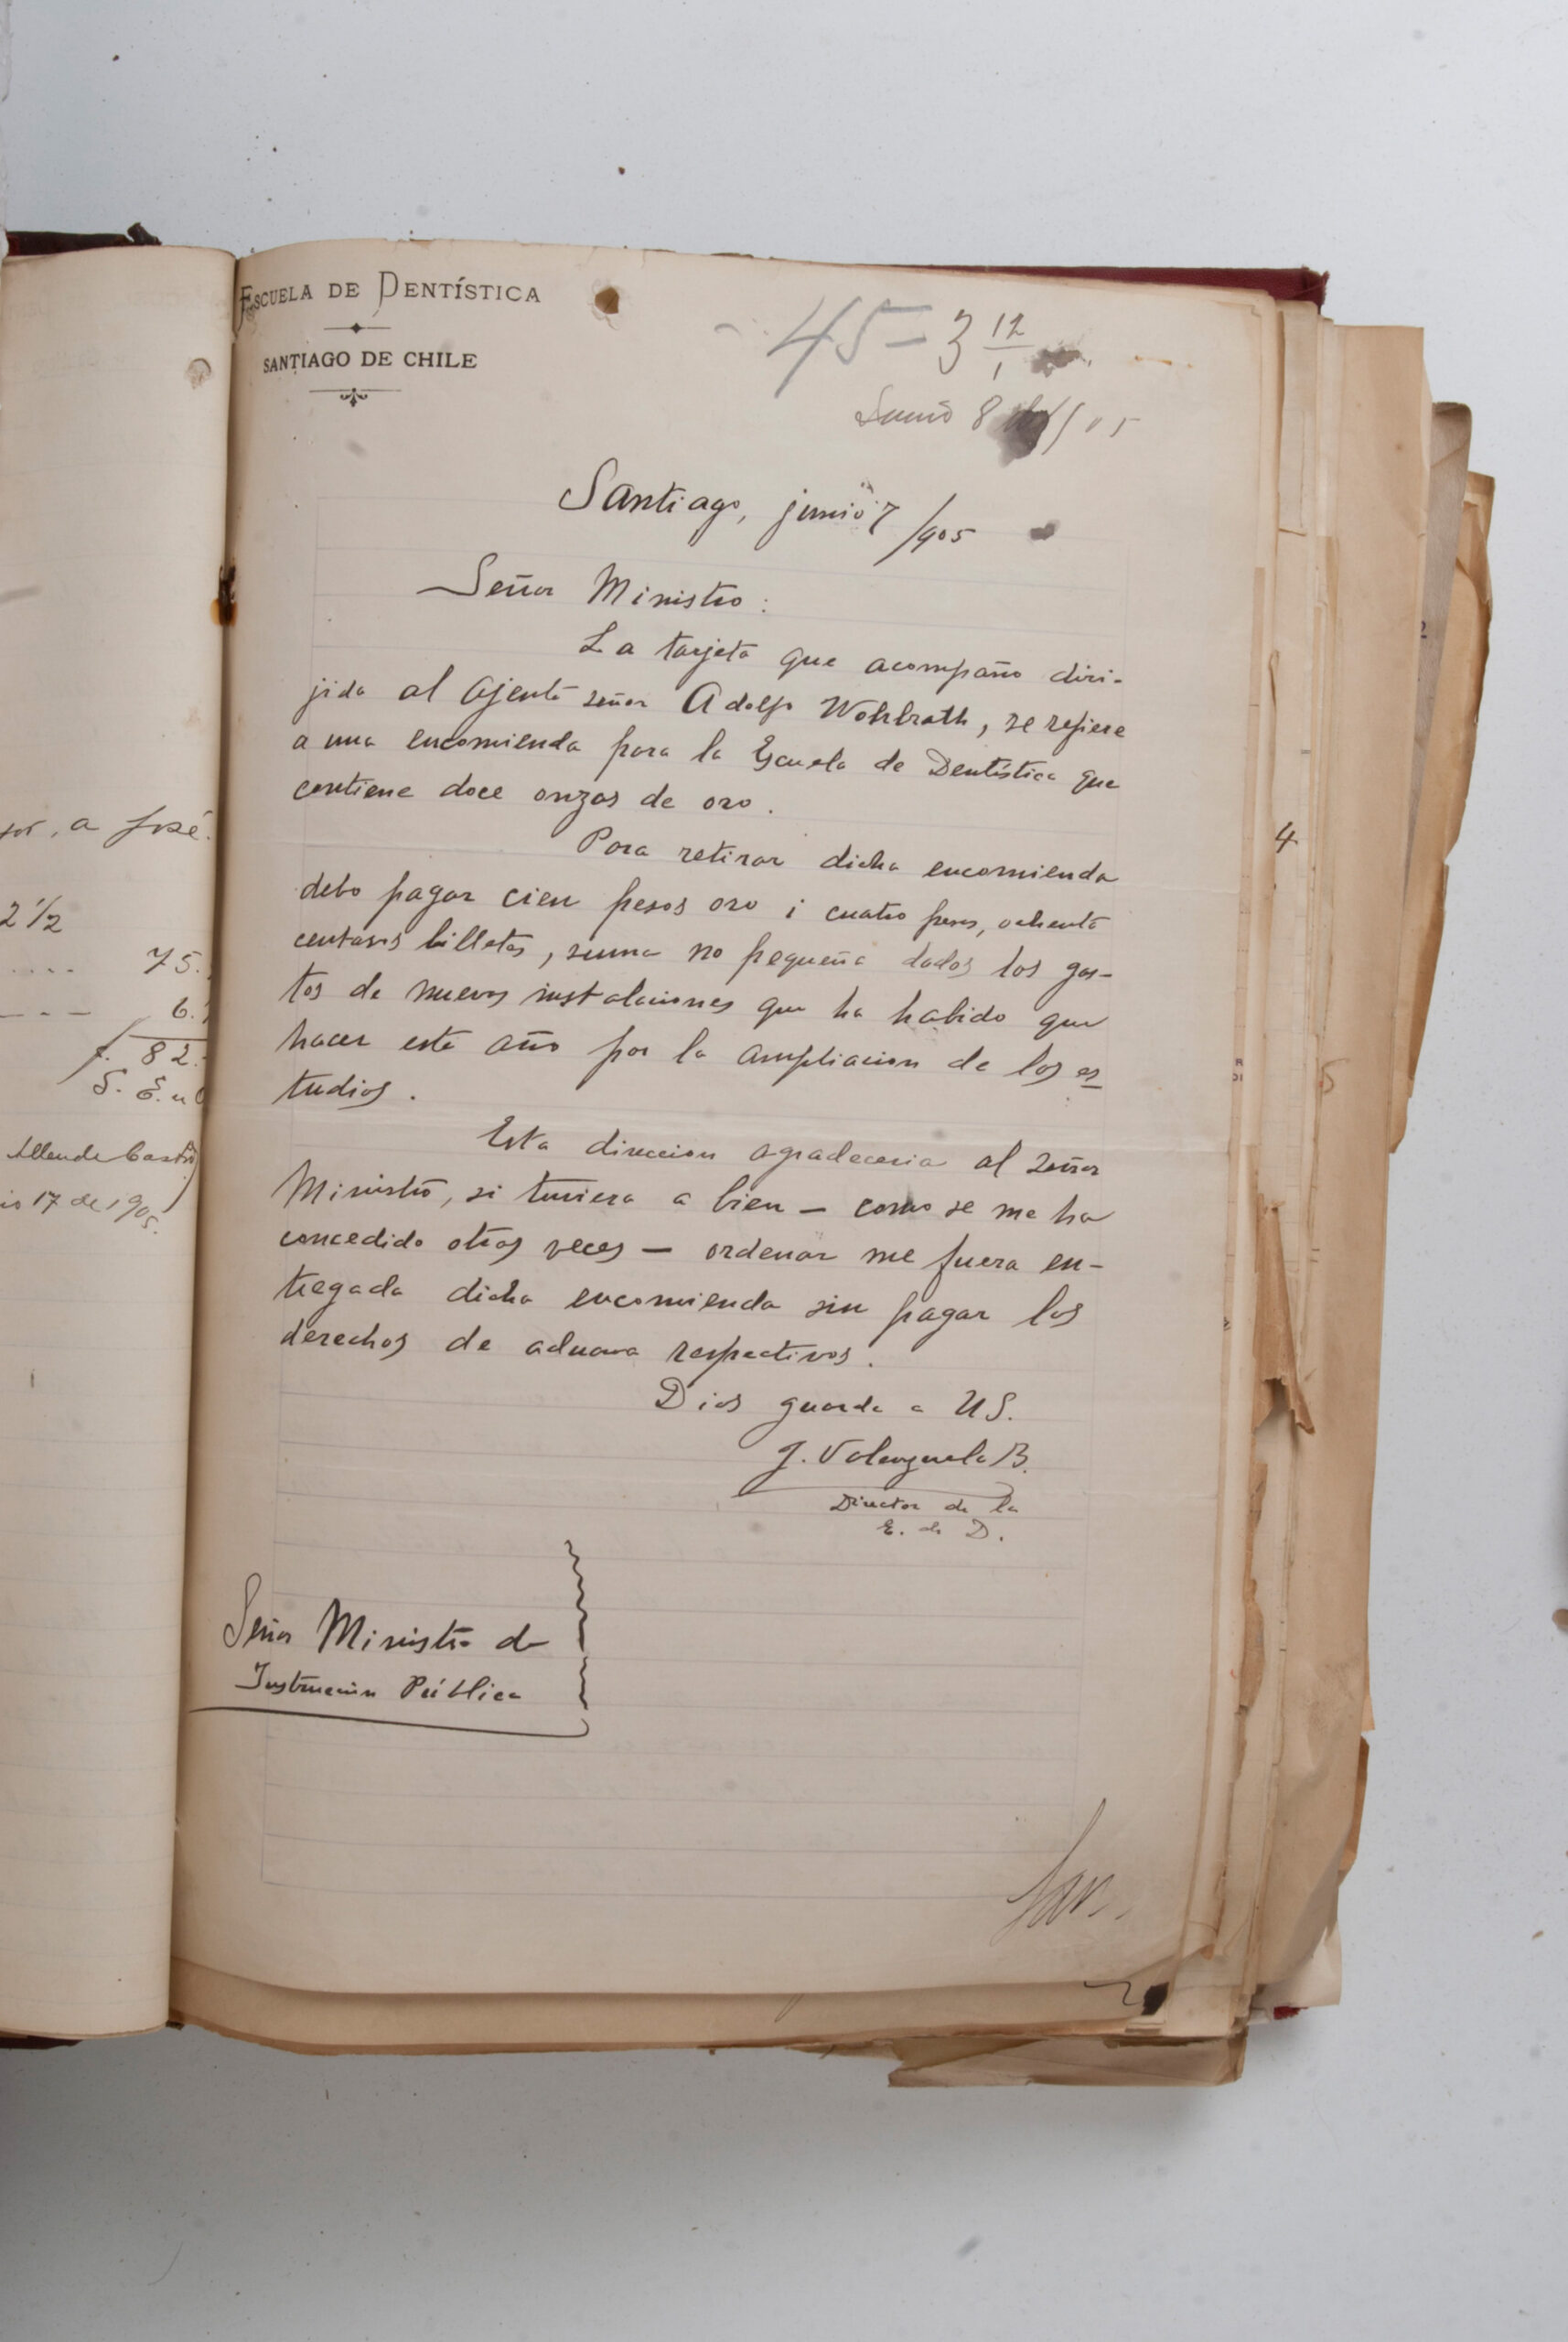 ESCUELA DE DENTÍSTICA
SANTIAGO DE CHILE
45 - 3 12/1
Junio 8
Santiago, junio 7/905
Señor Ministro:
La tarjeta que acompaño diri-
jida al Ajente señor Adolfo Wohlrath, se refiere
a una encomienda para la Escuela de Dentística que
contiene doce onzas de oro.
Para retirar dicha encomienda
debo pagar cien pesos oro i cuatro pesos, ochenta
centavos billetes, suma no pequeña dados los gas-
tos de nuevas instalaciones que ha habido que
hacer este año por la ampliacion de los es
tudios.
Esta direccion agradeceria al Señor
Ministro, si tuviera a bien - como se me ha
concedido otras veces - ordenar me fuera en-
tregada dicha encomienda sin pagar los
derechos de aduana respectivos.
Dios guarde a US.
J. Valenzuela B.
Director de la
E. de D.
Señor Ministro de
Instruccion Pública
a José.
2 1/2
75.
6.
82.
S. E. u
Allende Castro
17 de 1905.
4
5